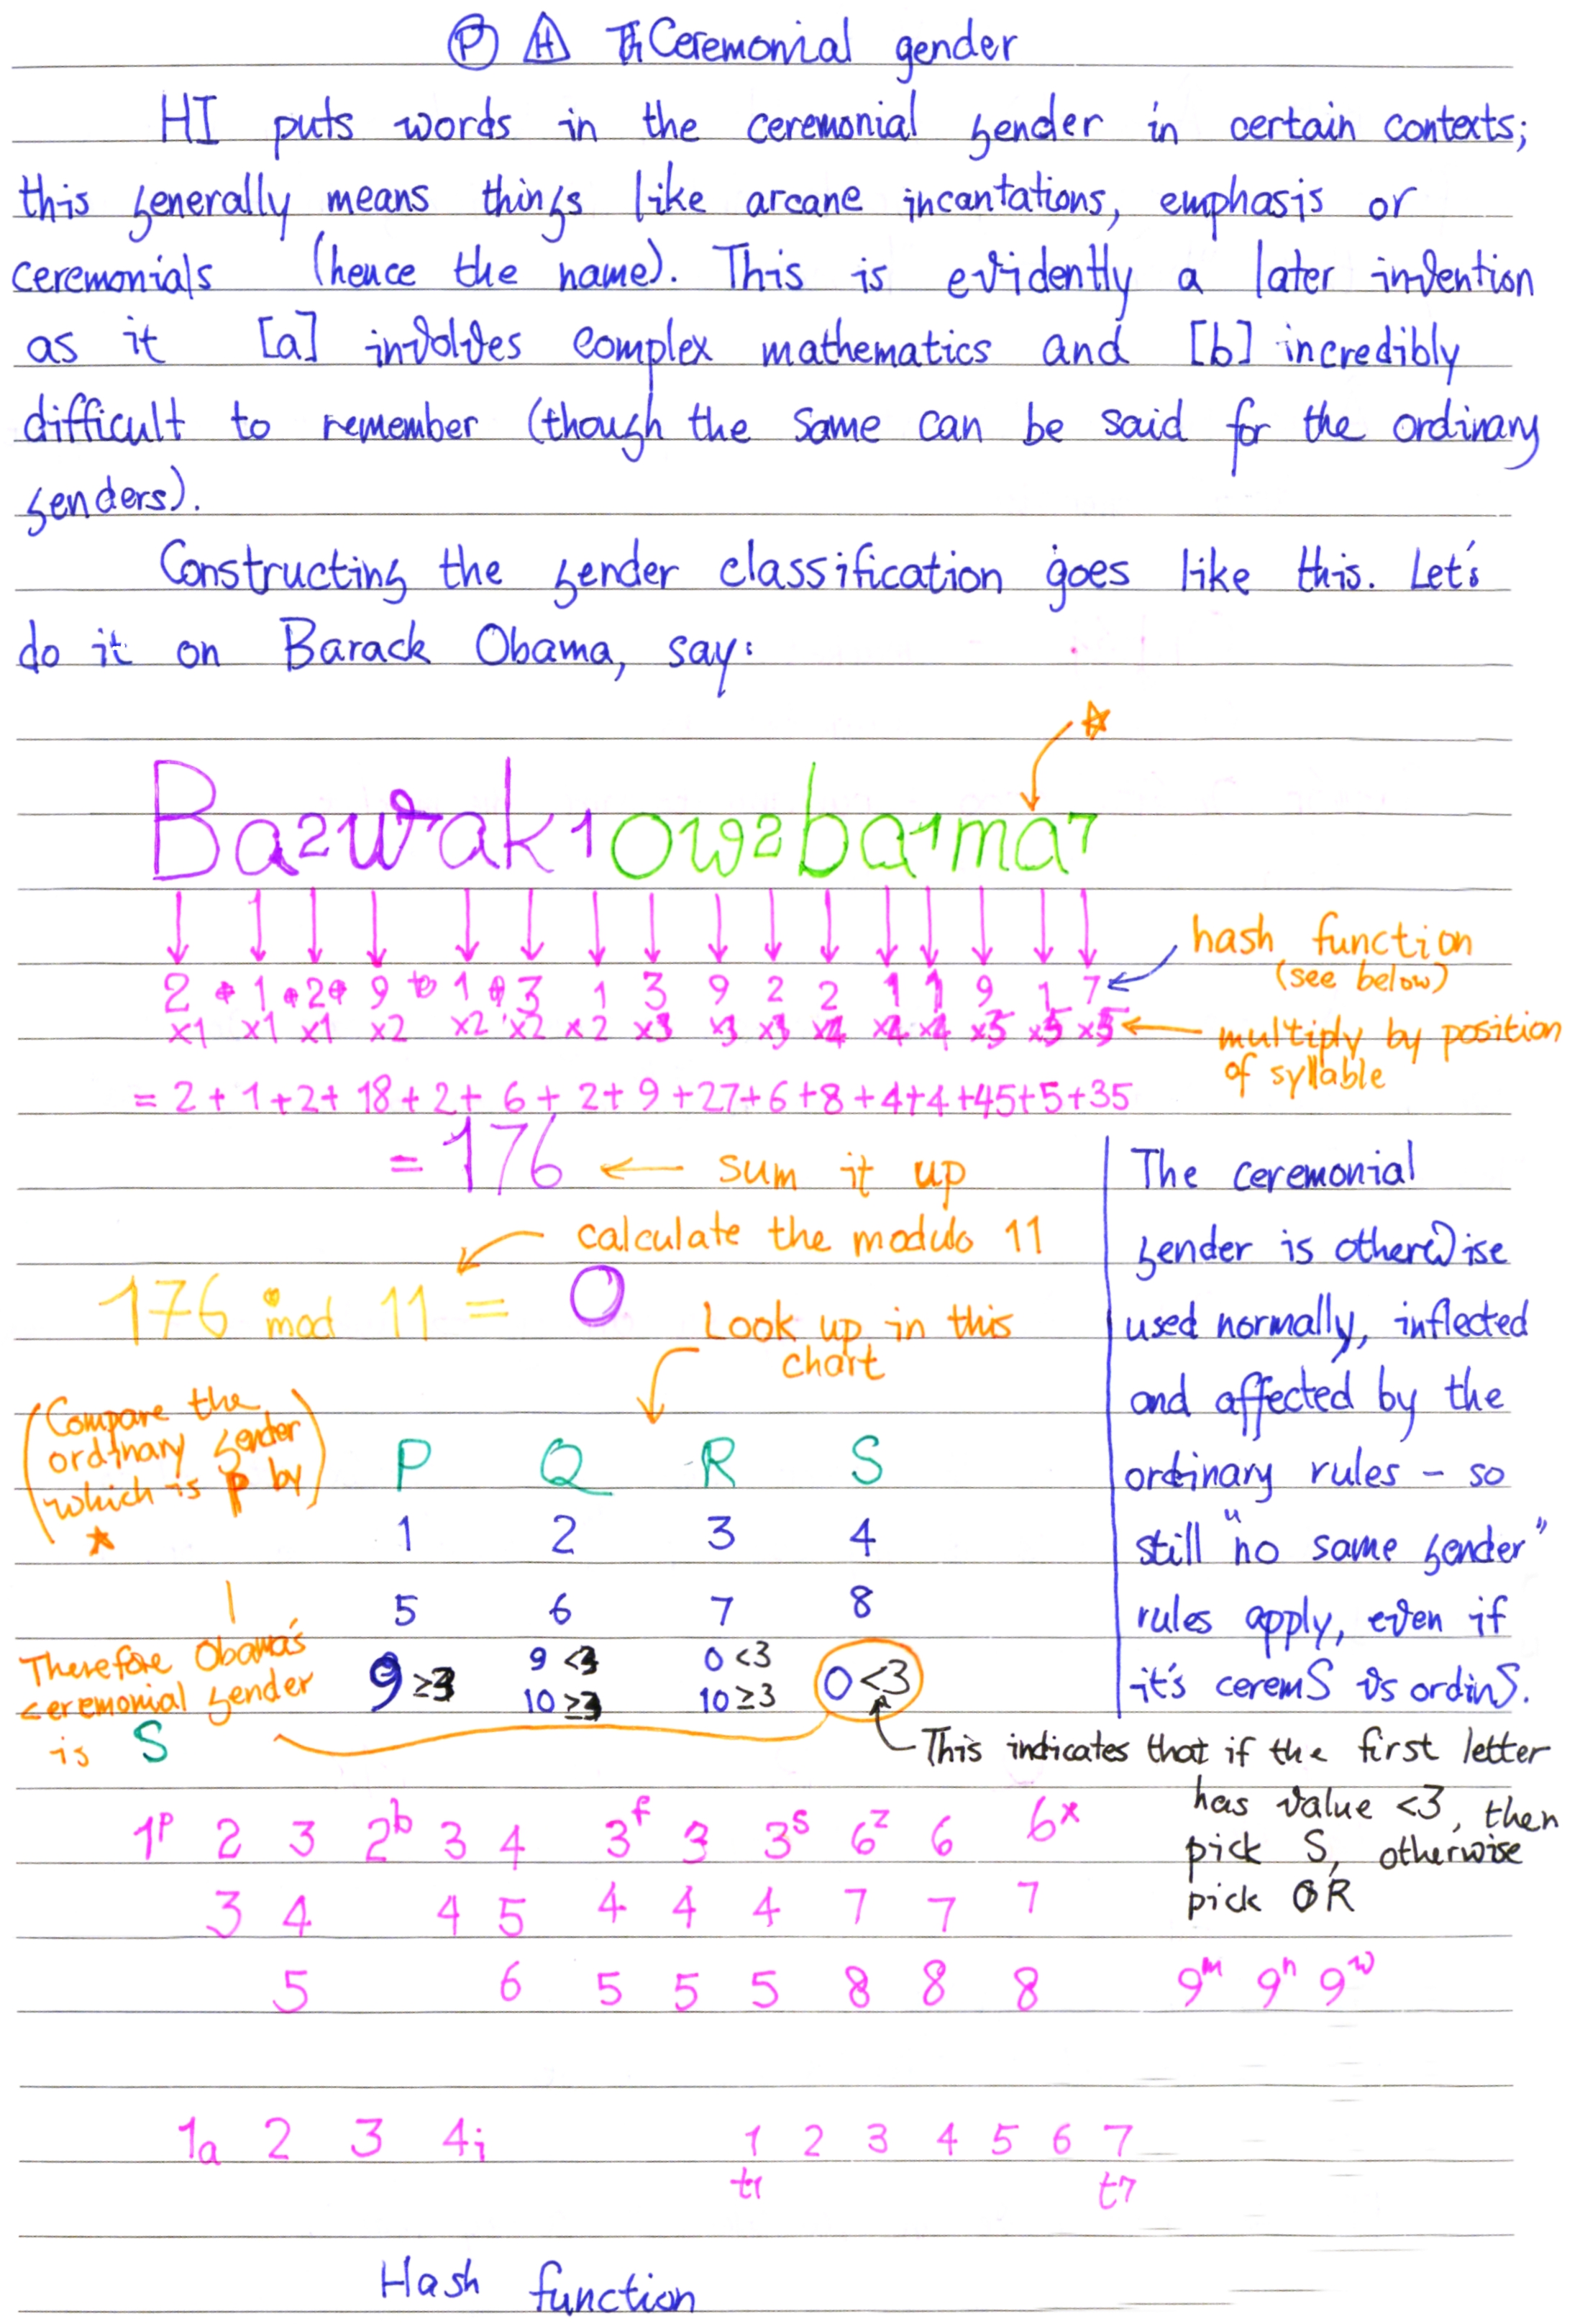 Ⓟ H Ceremonial gender
HI puts words in the ceremonial gender in certain contexts;
this generally means things like arcane incantations, emphasis or
ceremonials (hence the name). This is evidently a later invention
as it [a] involves complex mathematics and [b] incredibly
difficult to remember (though the same can be said for the ordinary
genders).
Constructing the gender classification goes like this. Let's
do it on Barack Obama, say:
☆
Ba2wak1 O1w2ba1ma7
2 + 1 + 2 + 9 + 1 + 3 1 3 9 2 2 1 1 9 1 7
hash function
(see below)
×1 ×1 ×1 ×2 ×2 ×2 ×2 ×3 ×3 ×3 ×4 ×4 ×4 ×5 ×5 ×5
multiply by position
of syllable
= 2 + 1 + 2 + 18 + 2 + 6 + 2 + 9 + 27 + 6 + 8 + 4 + 4 + 45 + 5 + 35
= 176 ← sum it up
calculate the modulo 11
176 mod 11 = 0
Look up in this
chart
(Compare the
ordinary gender
which is P by)
★
P Q R S
1 2 3 4
5 6 7 8
9 ≥3 9 <3 0 <3 0 <3
10 ≥3 10 ≥3
Therefore Obama's
ceremonial gender
is S
The ceremonial
gender is otherwise
used normally, inflected
and affected by the
ordinary rules – so
still "no same gender"
rules apply, even if
it's ceremS vs ordinS.
This indicates that if the first letter
has value <3, then
pick S, otherwise
pick R
1ᵖ 2 3 2ᵇ 3 4 3ᶠ 3 3ˢ 6ᶻ 6 6ˣ
3 4 4 5 4 4 4 7 7 7
5 6 5 5 5 8 8 8 9ᵐ 9ⁿ 9ʷ
1a 2 3 4i 1 2 3 4 5 6 7
t1 t7
Hash function